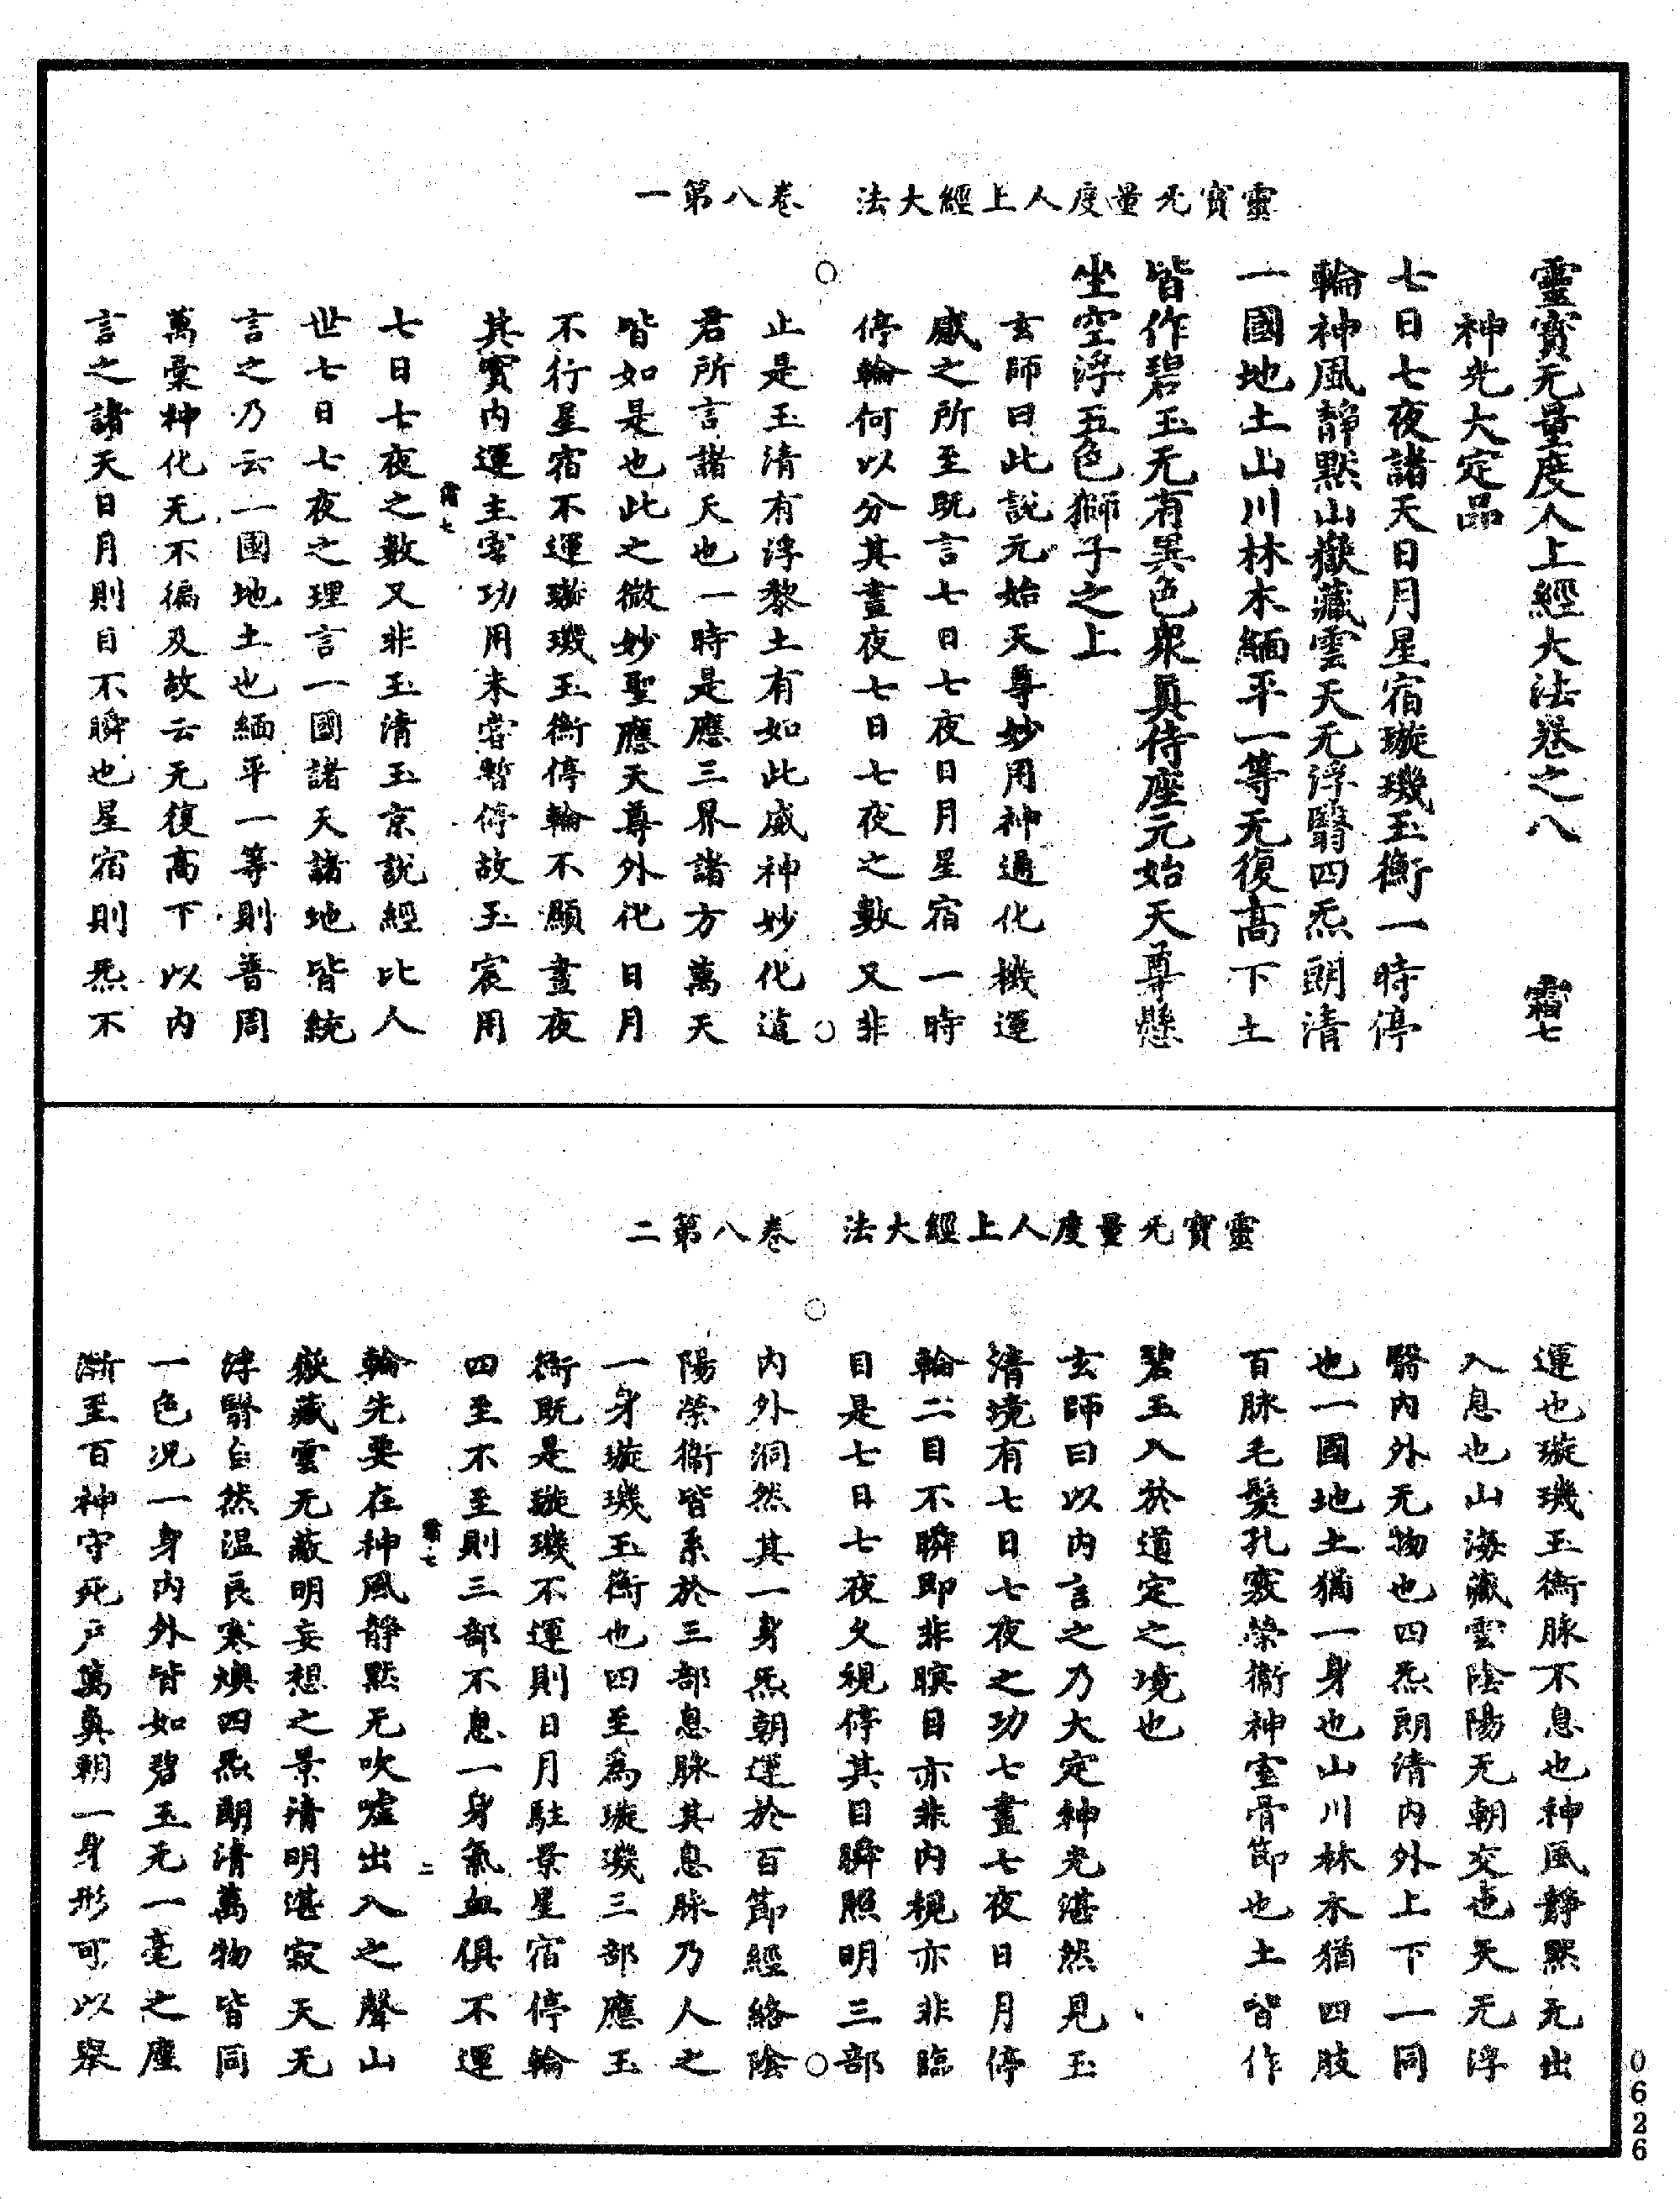 靈寶无量度人上經大法　卷八第一
靈寶无量度人上經大法卷之八　霜七
神光大定品
七日七夜諸天日月星宿璇璣玉衡一時停
輪神風靜默山嶽藏雲天无浮翳四炁朗清
一國地土山川林木緬平一等无復高下土
皆作碧玉无有異色衆真侍座元始天尊懸
坐空浮五色獅子之上
玄師曰此說元始天尊妙用神通化機運
感之所至既言七日七夜日月星宿一時
停輪何以分其晝夜七日七夜之數又非
止是玉清有浮黎土有如此威神妙化道
君所言諸天也一時是應三界諸方萬天
皆如是也此之微妙聖應天尊外化日月
不行星宿不運璇璣玉衡停輪不顯晝夜
其實内運主宰功用未嘗暫停故玉宸用
霜七
七日七夜之數又非玉清玉京說經比人
世七日七夜之理言一國諸天諸地皆統
言之乃云一國地土也緬平一等則普周
萬彙神化无不徧及故云无復高下以内
言之諸天日月則目不瞬也星宿則炁不
靈寶无量度人上經大法　卷八第二
運也璇璣玉衡脉不息也神風靜默无出
入息也山海藏雲陰陽无朝交也天无浮
翳内外无物也四炁朗清内外上下一同
也一國地土猶一身也山川林木猶四肢
百脉毛髮孔竅榮衞神室骨節也土皆作
碧玉入於道定之境也
玄師曰以内言之乃大定神光湛然見玉
清境有七日七夜之功七晝七夜日月停
輪二目不瞬即非瞑目亦非内視亦非臨
目是七日七夜久視停其目瞬照明三部
内外洞然其一身炁朝運於百節經絡陰
陽榮衞皆系於三部息脉其息脉乃人之
一身璇璣玉衡也四至爲璇璣三部應玉
衡既是璇璣不運則日月駐景星宿停輪
四至不至則三部不息一身氣血俱不運
霜七　二
輪先要在神風靜默无吹噓出入之聲山
嶽藏雲无蔽明妄想之景清明湛寂天无
浮翳自然温良寒燠四炁朗清萬物皆同
一色况一身内外皆如碧玉无一毫之塵
漸至百神守死户萬真朝一身形可以舉
0626